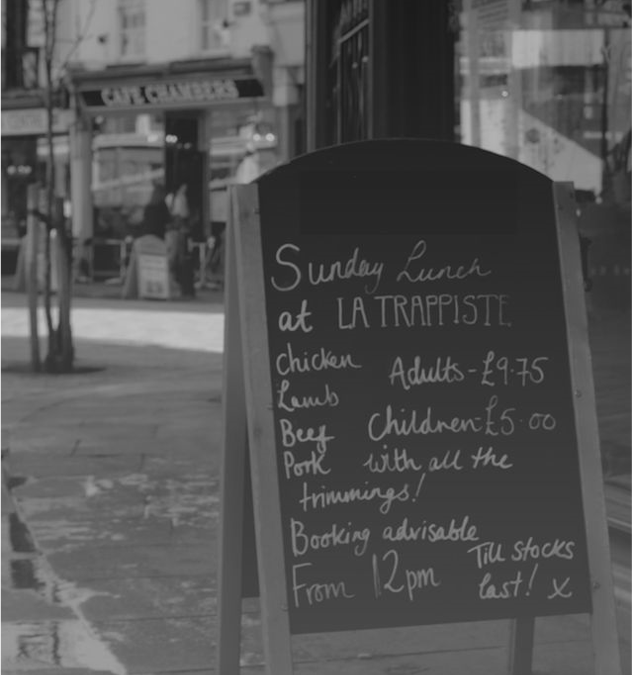 CAFE CHAMBERS
Sunday Lunch
at LA TRAPPISTE
Chicken
Adults - £9.75
Lamb
Children - £5.00
Beef
Pork with all the
trimmings!
Booking advisable
From 12pm
Till stocks
last! x